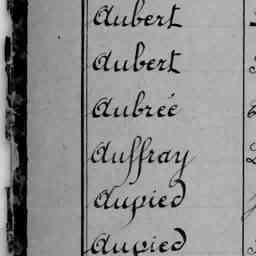 Aubert
Aubert
Aubrée
Auffray
Aupied
Aupied